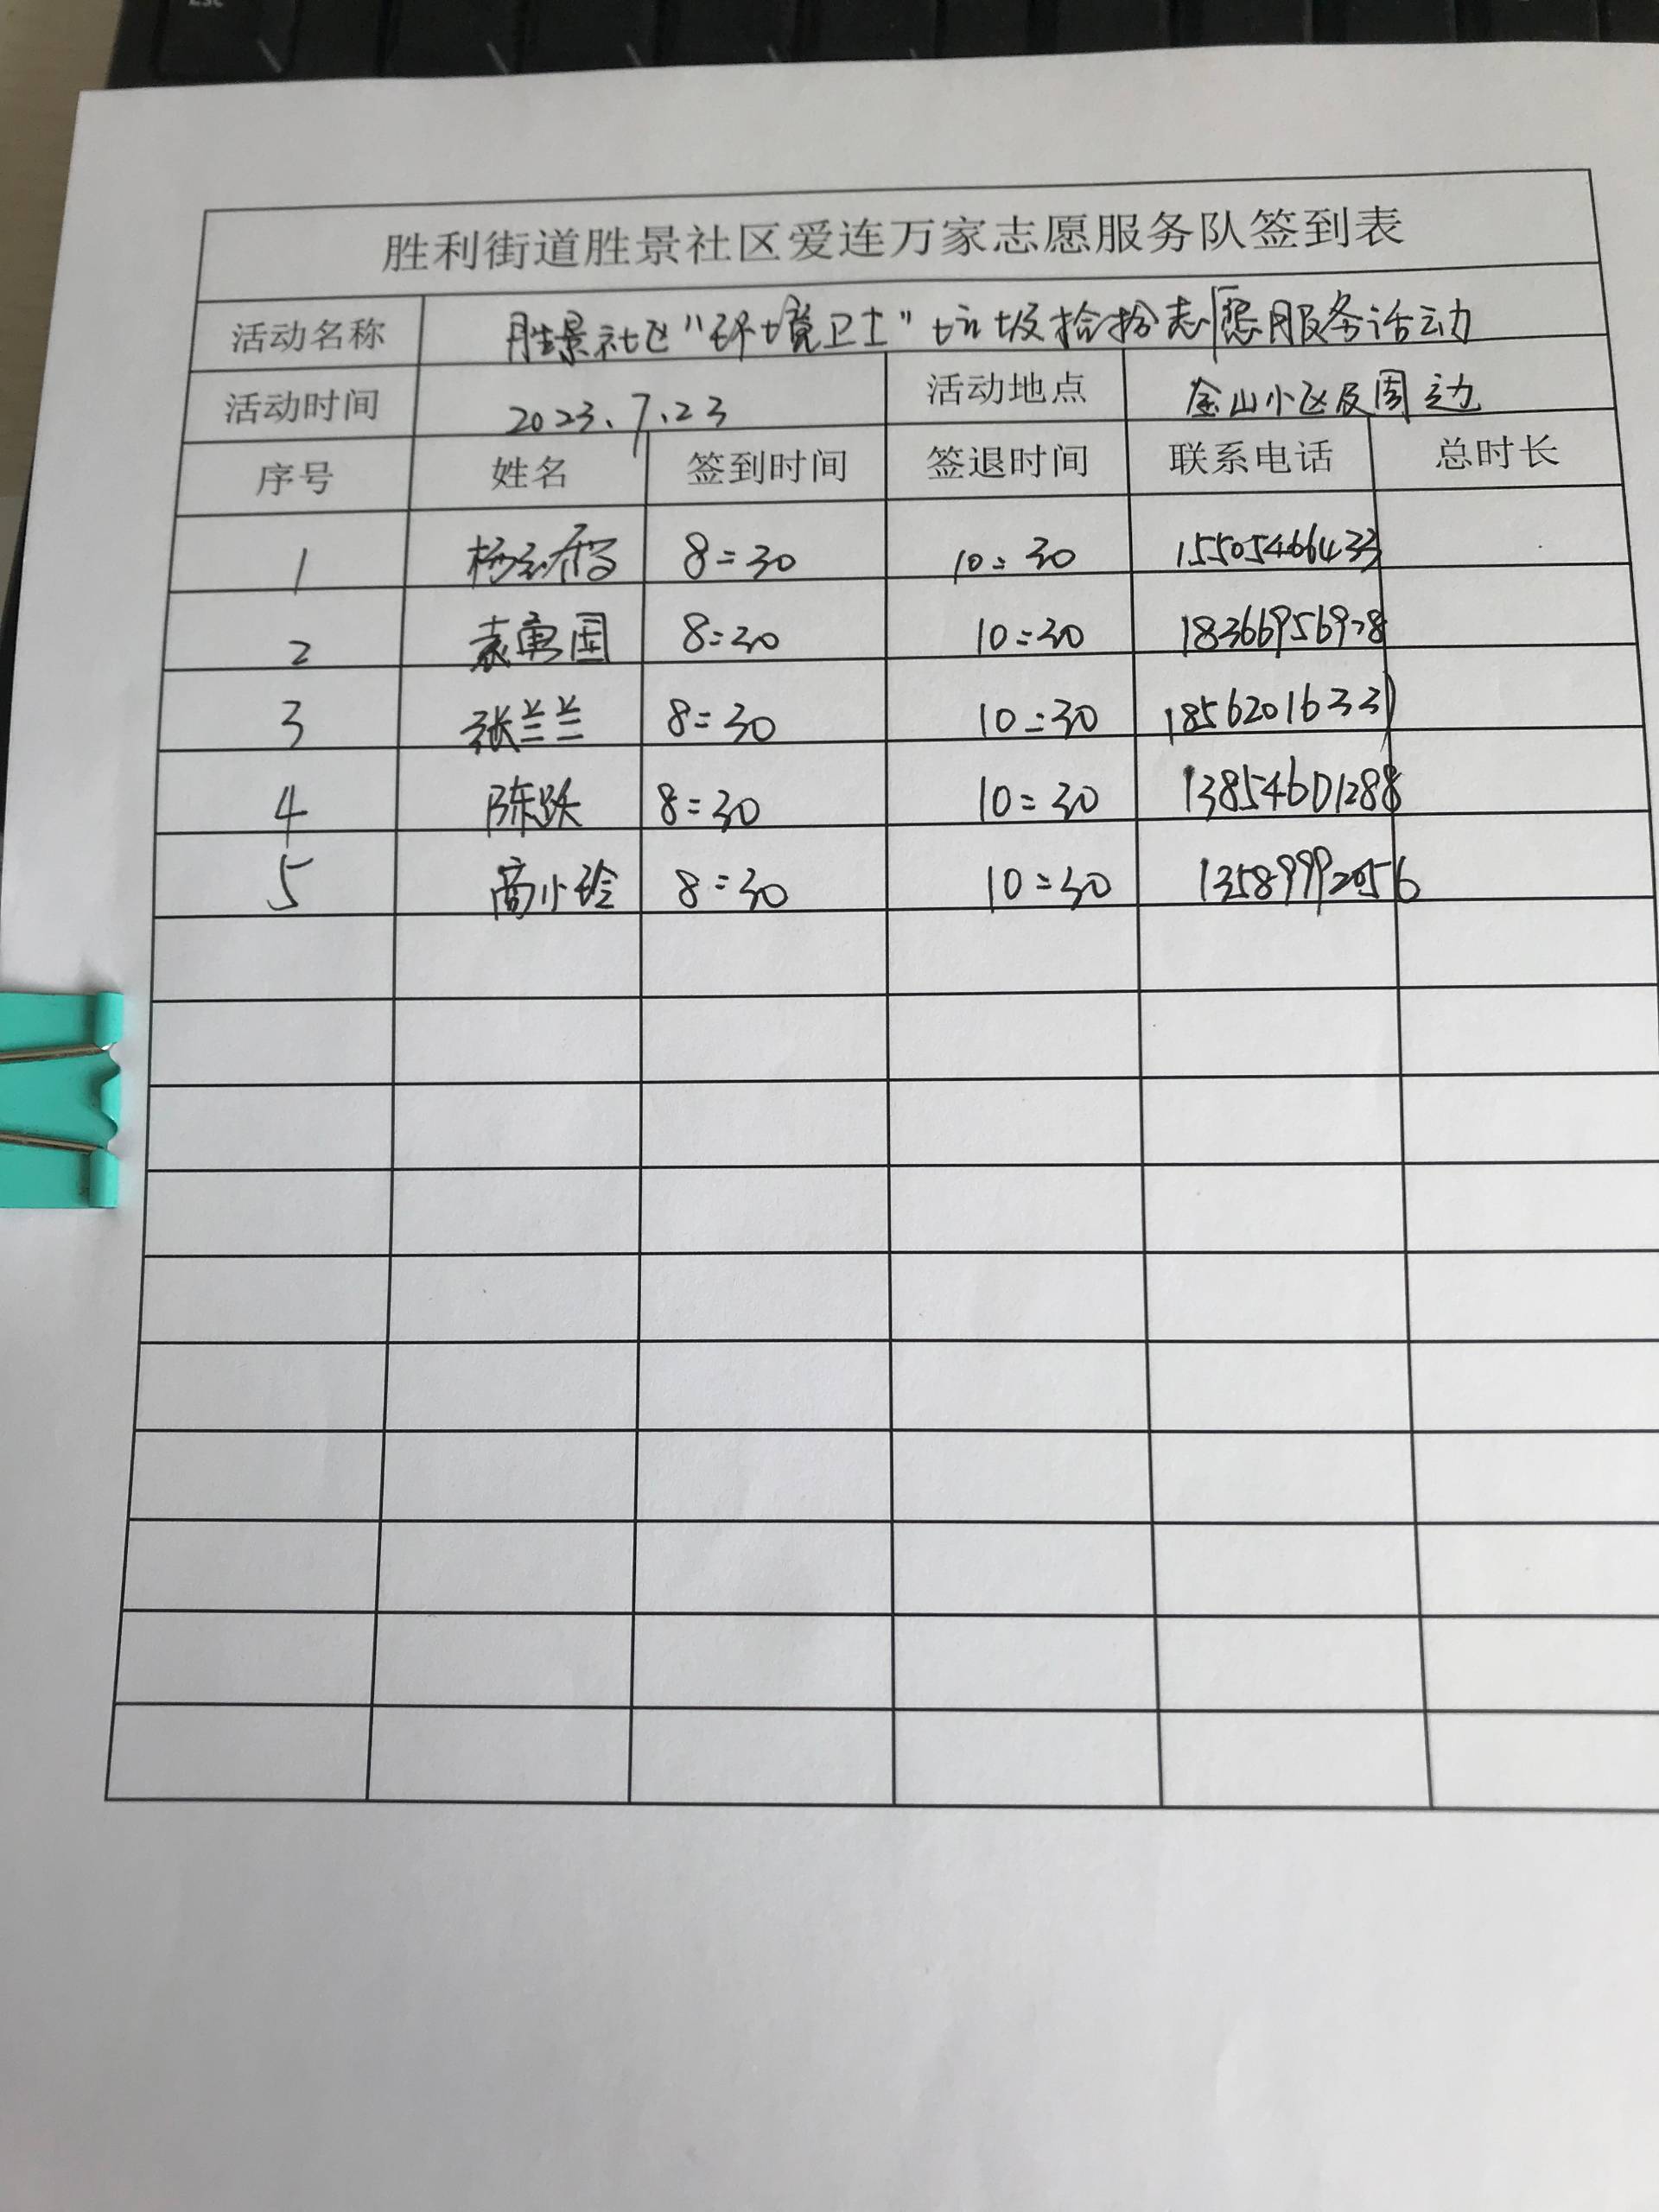 胜利街道胜景社区爱连万家志愿服务队签到表
活动名称 胜景社区"环境卫士"垃圾捡拾志愿服务活动
活动时间 2023.7.23 活动地点 金山小区及周边
序号 姓名 签到时间 签退时间 联系电话 总时长
1 杨 8:30 10:30 15505466433
2 袁勇国 8:30 10:30 18366956928
3 张兰兰 8:30 10:30 18562016331
4 陈跃 8:30 10:30 13854601288
5 商小玲 8:30 10:30 13589992056